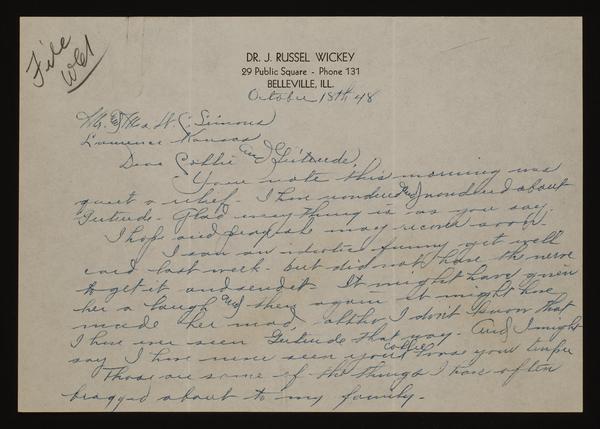 File
DR. J. RUSSEL WICKEY
29 Public Square - Phone 131
BELLEVILLE, ILL.
October 18th 48
Mr. and Mrs W. C. Simons
Lawrence Kansas
Dear and Gertrude,
Your note this morning was
quiet a relief. I have wondered and wondered about
Gertrude. Glad every thing is as you say.
I hope and pray she may recover soon.
I saw an idiotic funny get well
card last week. but did not have the nerve
to get it and send it. It might have given
her a laugh and then again it might have
made her mad, altho I don't know that
I have ever seen Gertrude that way. And I might
say I have never seen you loose your temper
Those are some of the things I have often
bragged about to my family.